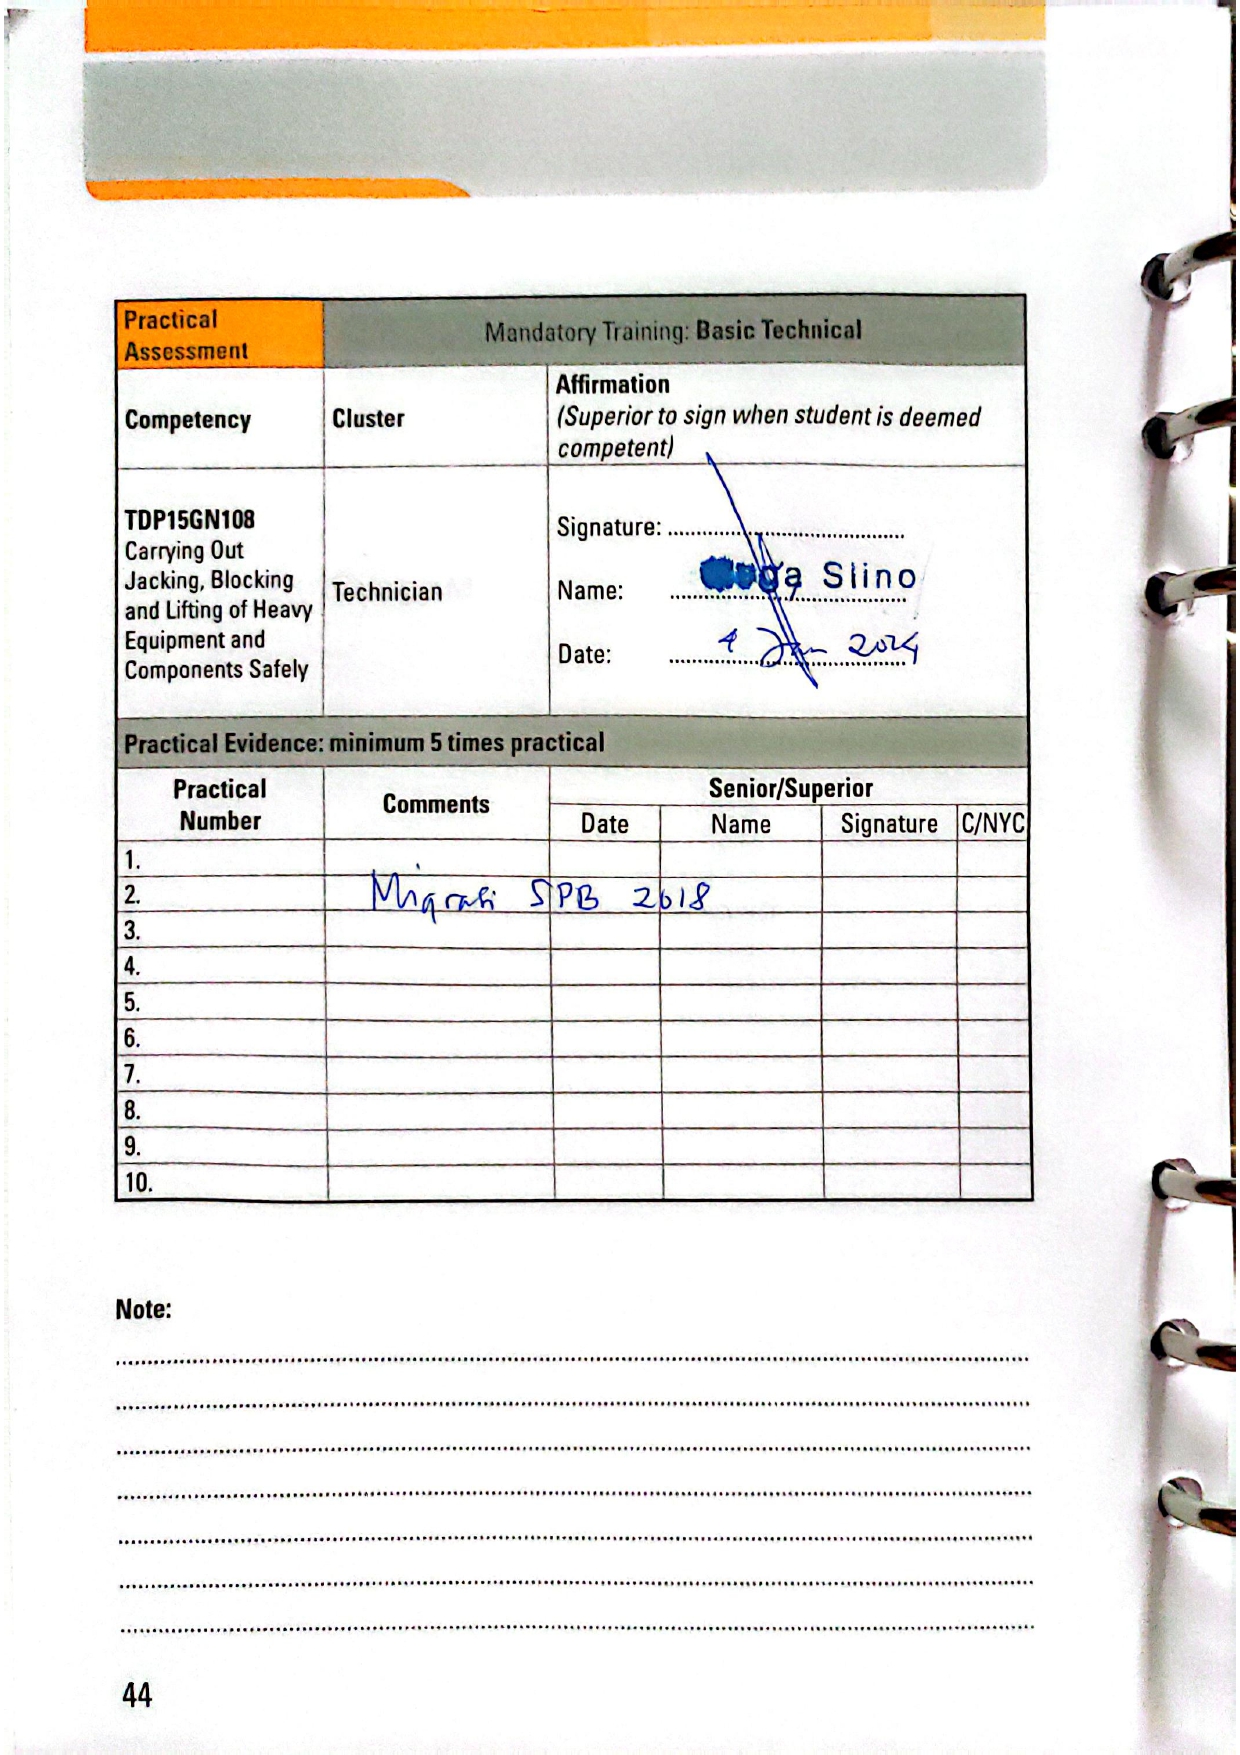 Practical
Assessment
Mandatory Training: Basic Technical
Competency
Cluster
Affirmation
(Superior to sign when student is deemed
competent)
TDP15GN108
Carrying Out
Jacking, Blocking
and Lifting of Heavy
Equipment and
Components Safely
Technician
Signature:
Name: Slino
Date: 4 Jan 2024
Practical Evidence: minimum 5 times practical
Practical
Number
Comments
Senior/Superior
Date Name Signature C/NYC
1.
2. Migrasi SPB 2018
3.
4.
5.
6.
7.
8.
9.
10.
Note:
44